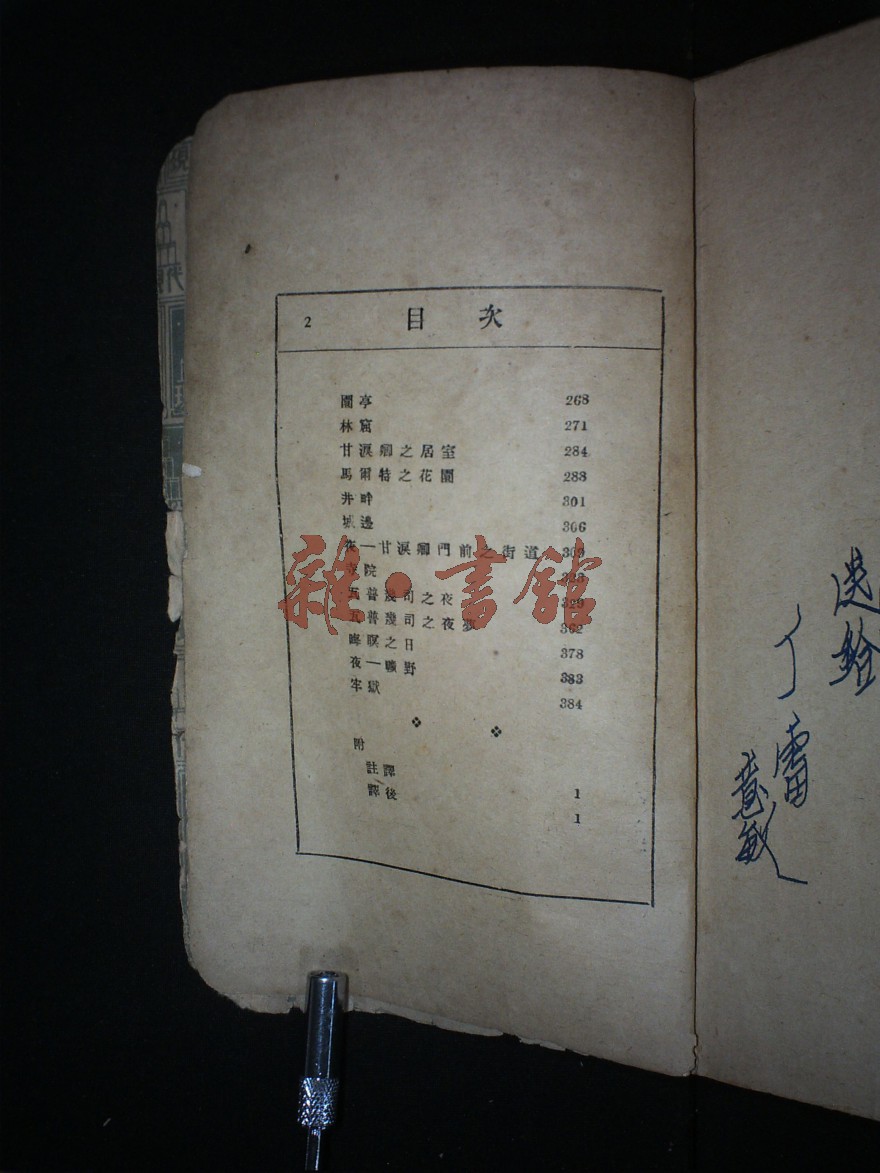 2 目次
園亭 268
林窟 271
甘淚卿之居室 284
馬爾特之花園 288
井畔 301
城邊 306
夜—甘淚卿門前之街道 309
寺院 323
瓦普幾司之夜 329
瓦普幾司之夜夢 362
晦暝之日 378
夜—曠野 383
牢獄 384
附
註譯 1
譯後 1
雜·書館